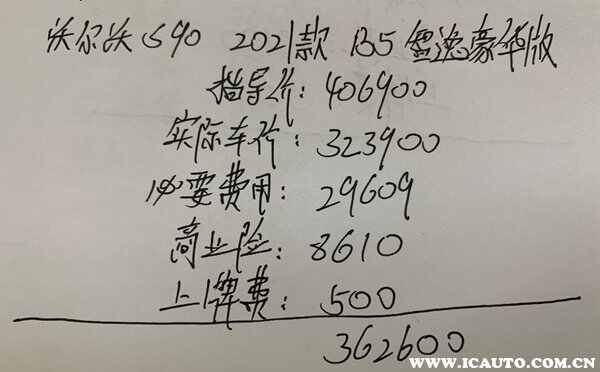 沃尔沃S90 2021款 B5 智逸豪华版
指导价：406900
实际车价：323900
必要费用：29609
商业险：8610
上牌费：500
362600
WWW.ICAUTO.COM.CN